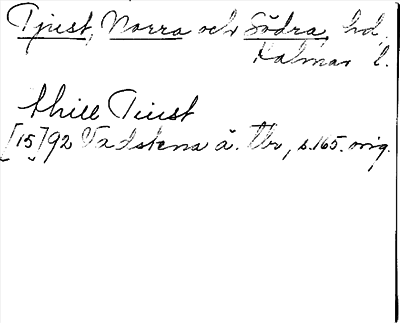 Tjust, Norra och Södra, hd.
Kalmar l.
thill Tiust
[15]92 Vadstena ä. tbr, s. 165. orig.